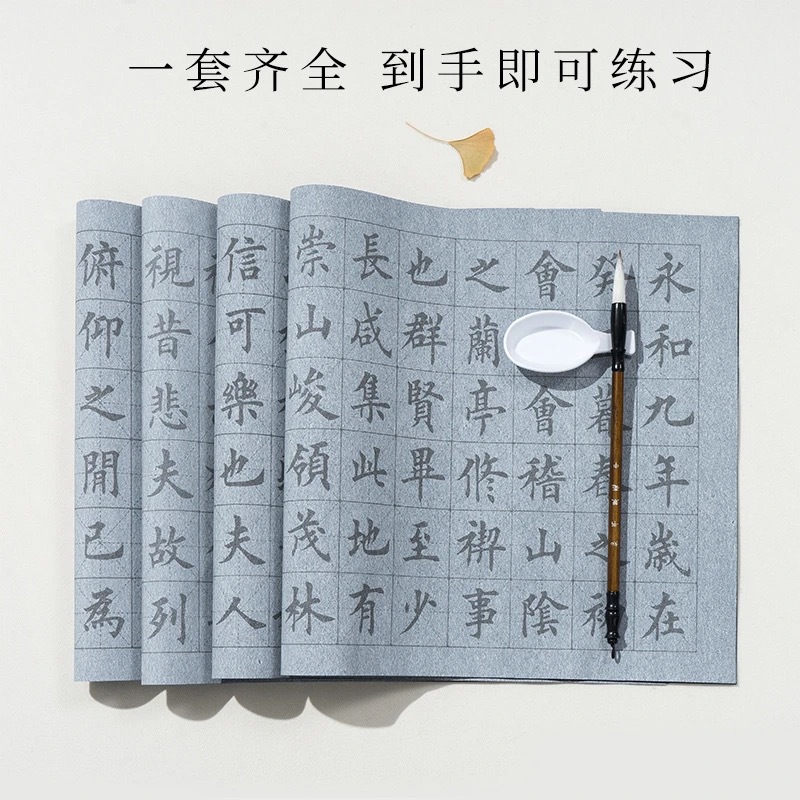 一套齐全 到手即可练习
永和九年歲在
癸暮春之初
會會稽山陰
之蘭亭修禊事
也群賢畢至少
長咸集此地有
崇山峻領茂林
信可樂也夫人
視昔悲夫故列
俯仰之閒已為